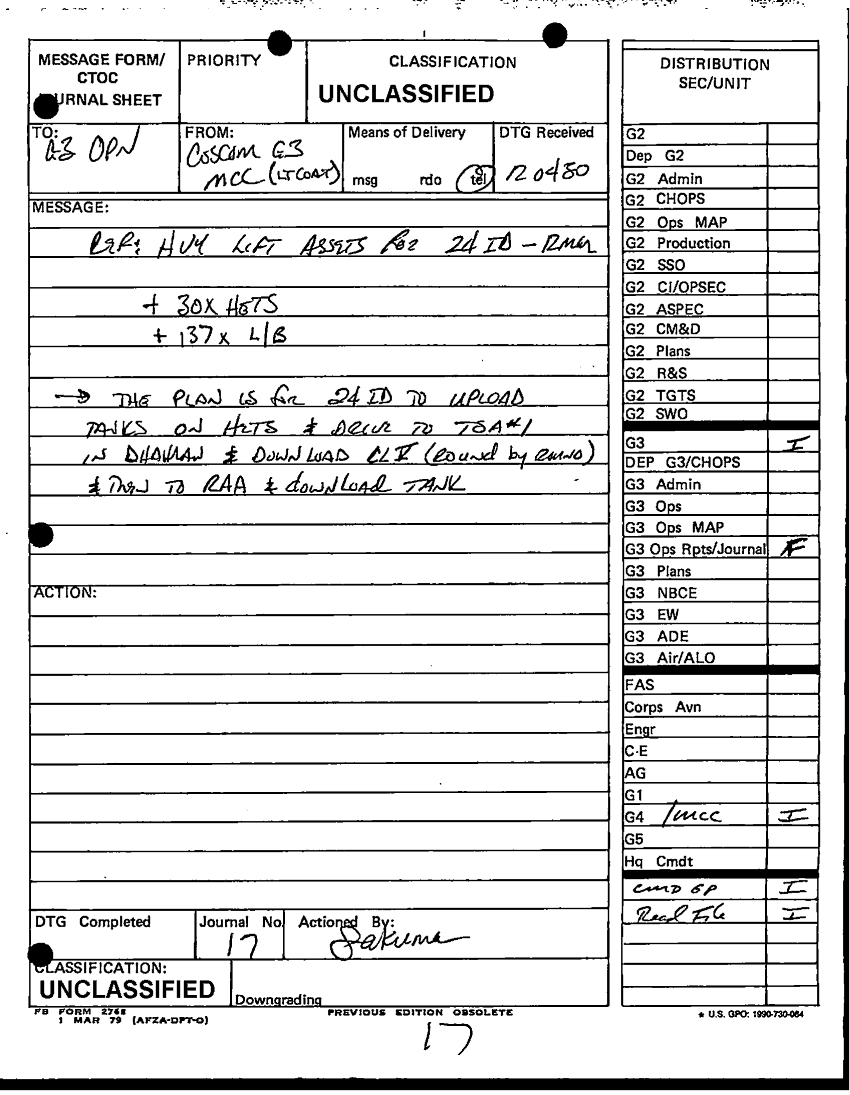 MESSAGE FORM/
CTOC
URNAL SHEET
PRIORITY
CLASSIFICATION
UNCLASSIFIED
TO:
G3 OPN
FROM:
COSCOM G3
MCC (LTCOAT)
Means of Delivery
msg rdo tel
DTG Received
120450
MESSAGE:
REF: HVY LIFT ASSETS FOR 24 ID –
+ 30X HETS
+ 137X L/B
→ THE PLAN IS for 24 ID TO UPLOAD
TANKS ON HETS & DRIVE TO TSA#1
IN DHAHRAN & DOWNLOAD CL V (ROUND by ROUND)
& THEN TO RAA & downLOAD TANK
ACTION:
DTG Completed
Journal No.
17
Actioned By:
Sakuma
CLASSIFICATION:
UNCLASSIFIED
Downgrading
FB FORM 2768
1 MAR 79 (AFZA-DPT-O)
PREVIOUS EDITION OBSOLETE
17
DISTRIBUTION
SEC/UNIT
G2
Dep G2
G2 Admin
G2 CHOPS
G2 Ops MAP
G2 Production
G2 SSO
G2 CI/OPSEC
G2 ASPEC
G2 CM&D
G2 Plans
G2 R&S
G2 TGTS
G2 SWO
G3 I
DEP G3/CHOPS
G3 Admin
G3 Ops
G3 Ops MAP
G3 Ops Rpts/Journal F
G3 Plans
G3 NBCE
G3 EW
G3 ADE
G3 Air/ALO
FAS
Corps Avn
Engr
C-E
AG
G1
G4 /MCC I
G5
Hq Cmdt
CMD GP I
Read File I
★ U.S. GPO: 1990-730-064